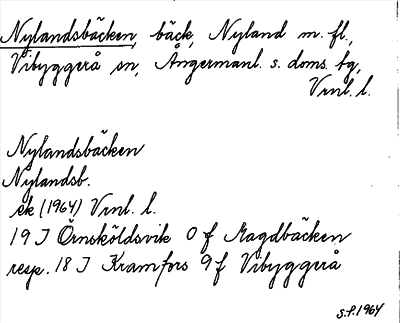 Nylandsbäcken, bäck, Nyland m. fl.,
Vibyggerå sn, Ångermanl. s. doms. tg,
Vrnl. l.
Nylandsbäcken
Nylandsb.
ek (1964) Vrnl. l.
19 J Örnsköldsvik 0 f Magdbäcken
resp. 18 J Kramfors 9 f Vibyggerå
S.P. 1964